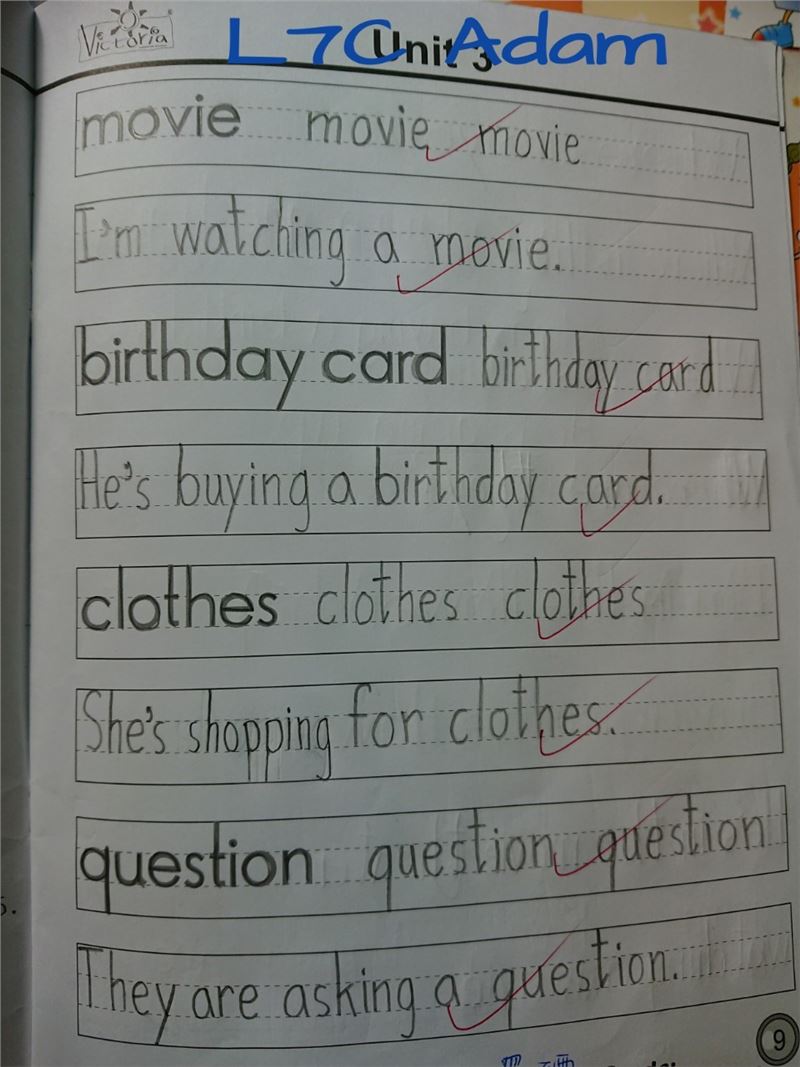 Victoria
L7C Adam
Unit 3
movie movie movie
I'm watching a movie.
birthday card birthday card
He's buying a birthday card.
clothes clothes clothes
She's shopping for clothes.
question question question
They are asking a question.
9